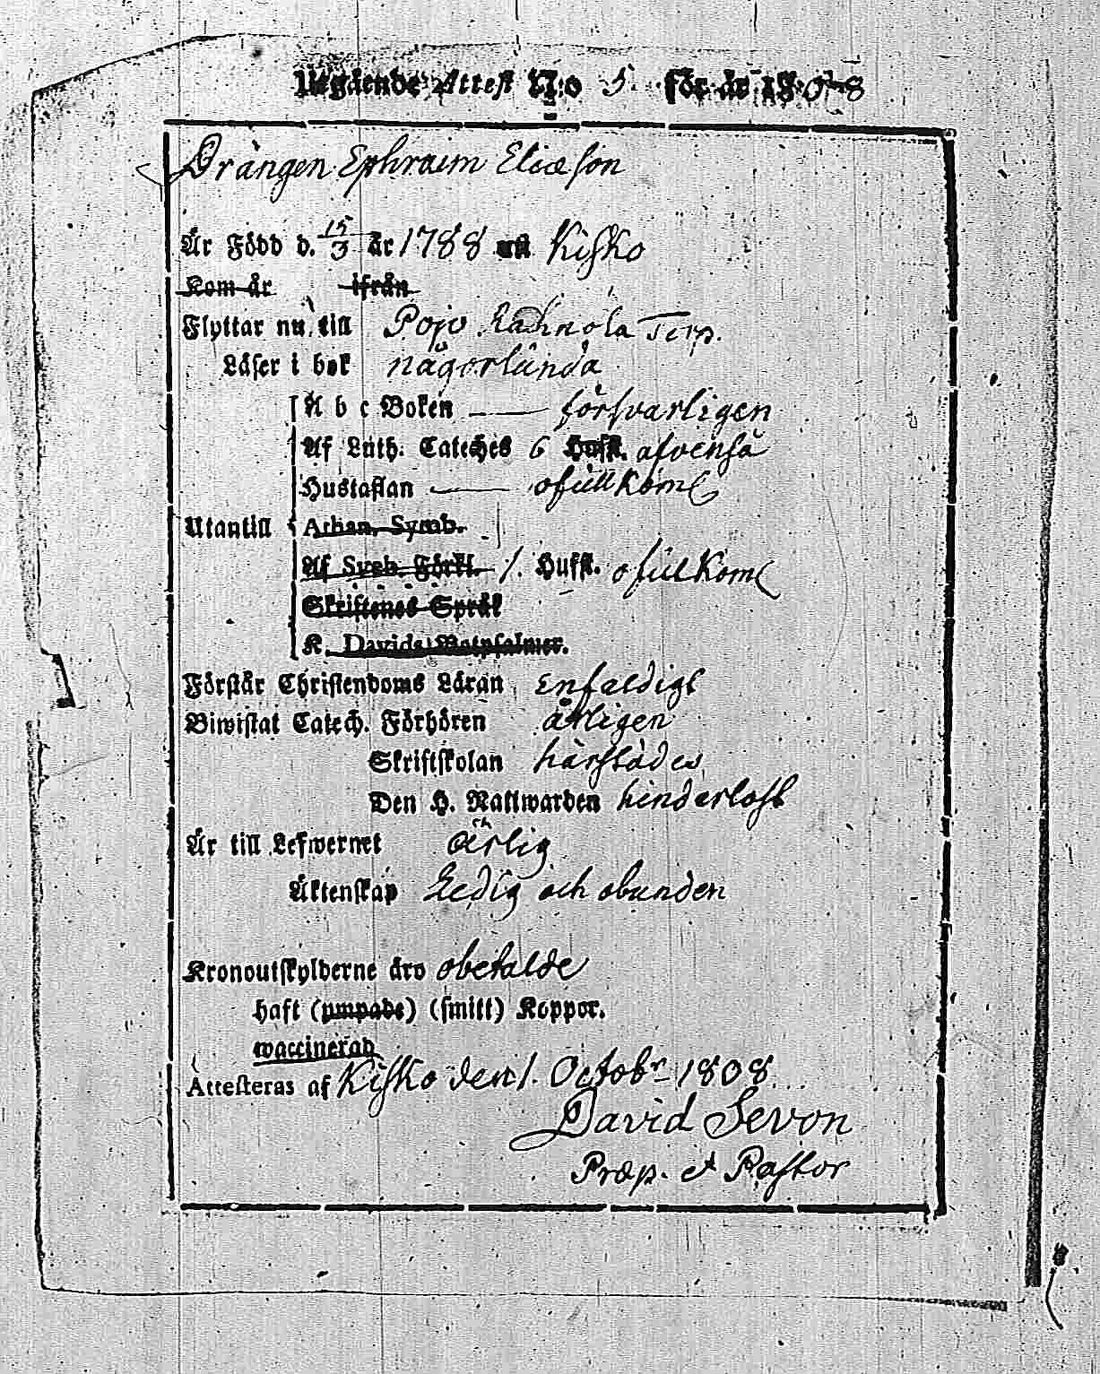 Utgående Attest N:o 5. för år 1808
Drängen Ephraim Eliæson
Är Född d. 15/3 år 1788 uti Kisko
Kom år ifrån
Flyttar nu till Pojo Torp.
Läser i bok någorlunda
A b c Boken — försvarligen
Af Luth. Cateches 6 Hufst. äfvenså
Hustaflan — ofullkoml
Utantill Athan. Symb.
Af Sveb. Förkl. 1. Hufst. ofulkoml
Skriftenes Språk
K. Davids Botpsalmer.
Förstår Christendoms Läran enfaldigt
Biwistat Catech. Förhören årligen
Skriftskolan härstädes
Den H. Nattwarden hinderlöst
Är till Lefwernet ärlig
Äktenskap Ledig och obunden
Kronoutskylderne äro obetalde
haft (ympade) (smitt) Koppor.
waccinerad
Attesteras af Kisko den 1. Octobr 1808
David Sevon
Præp. et Pastor